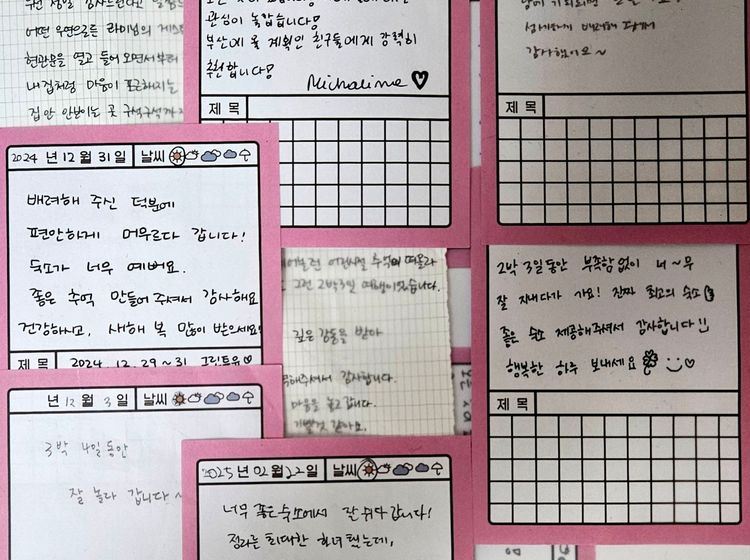 어떤 우연으로든 라미님의 게스
현관문을 열고 들어오면서부터
내집처럼 마음이 포근해지는
집안 안보이는 곳 구석구석까지
관심이 높값습니다!
부산에 올 계획인 친구들에게 강력히
추천합니다!
Michalina
제 목
섬세하게 배려해
감사했어요~
제 목
2024 년 12 월 31 일 날씨
배려해 주신 덕분에
편안하게 머무르다 갑니다!
숙소가 너무 예뻐요.
좋은 추억 만들어 주셔서 감사해요
건강하시고, 새해 복 많이 받으세요!
제 목 2024. 12. 29~31
어린시절 추억이 떠올라
그런 2박3일 여행이었습니다.
깊은 감동을 받다
해주셔서 감사합니다.
마음을 놓고 갑니다.
같아요.
2박 3일동안 부족함없이 너~무
잘 지내다가 가요! 진짜 최고의 숙소
좋은 숙소 제공해주셔서 감사합니다!!
행복한 하루 보내세요
제 목
년 12 월 3 일 날씨
3박 4일동안
잘 놀다 갑니다~
2025 년 02 월 22 일 날씨
너무 좋은 숙소에서 잘 쉬다 갑니다!
정리는 최대한 하려 했는데,